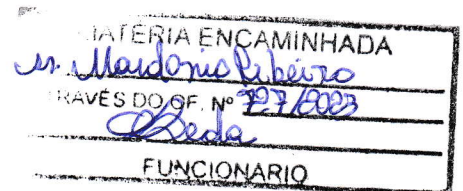 MATÉRIA ENCAMINHADA
Mardonio Ribeiro
ATRAVÉS DO OF. Nº 727/2023
FUNCIONARIO